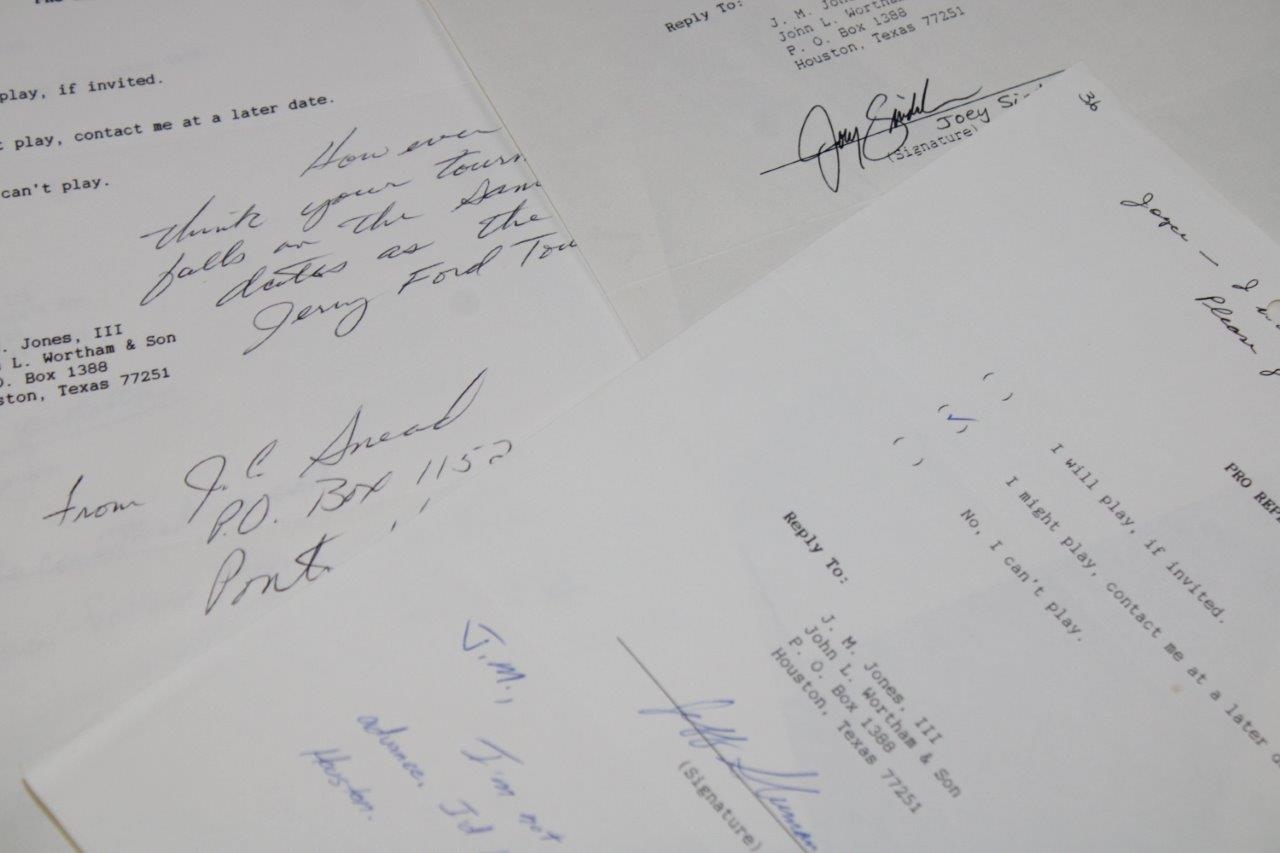 play, if invited.
play, contact me at a later date.
can't play.
However
think your tourn
falls on the sam
dates as the
Jerry Ford Tou
. Jones, III
L. Wortham & Son
O. Box 1388
ston, Texas 77251
From J.C. Snead
P.O. Box 1152
Pont
Reply To:
J. M. Jon
John L. Wortha
P. O. Box 1388
Houston, Texas 77251
Joey Sindel
Joey Si
(Signature)
36
Joyce — I
Please
PRO REP
( )
(✓)
( )
I will play, if invited.
I might play, contact me at a later d
No, I can't play.
Reply To:
J. M. Jones, III
John L. Wortham & Son
P. O. Box 1388
Houston, Texas 77251
Jeff Sluman
(Signature)
J.M.,
I'm not
advance. I'd
Houston.